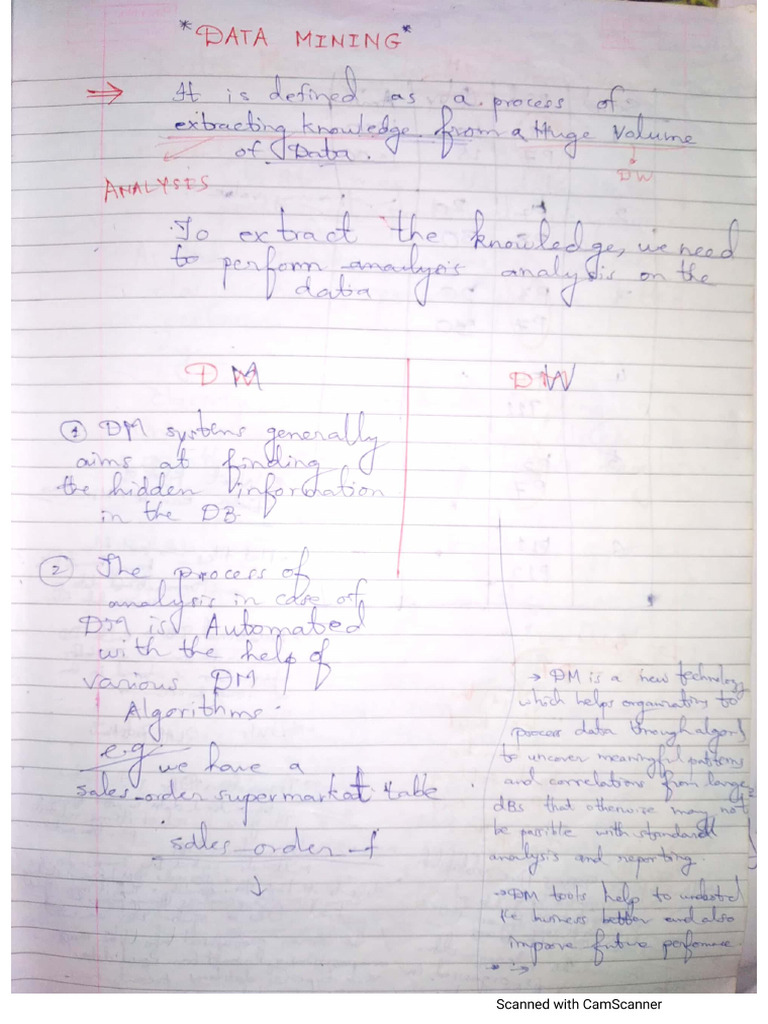 *DATA MINING*
⇒ It is defined as a process of
extracting knowledge from a Huge Volume
of Data.
DW
ANALYSIS
To extract the knowledge, we need
to perform analysis on the
data
DM
DW
① DM systems generally
aims at finding
the hidden information
in the DB
② The process of
analysis in case of
DM is Automated
with the help of
various DM
Algorithms.
e.g. we have a
sales_order supermarket table
sales_order_f
↓
→ DM is a new technology
which helps organizations to
process data through algori
to uncover meaningful patterns
and correlations from large
dBs that otherwise may not
be possible with standard
analysis and reporting.
→ DM tools help to understand
the business better and also
improve future performance
Scanned with CamScanner